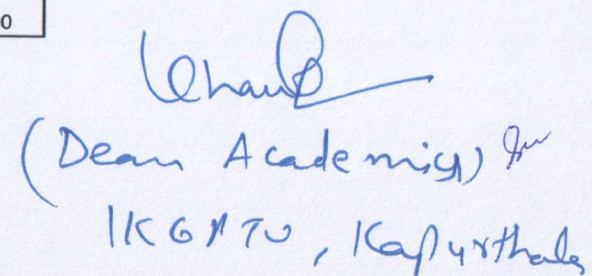 0
(Dean Academics)
IKGPTU, Kapurthala